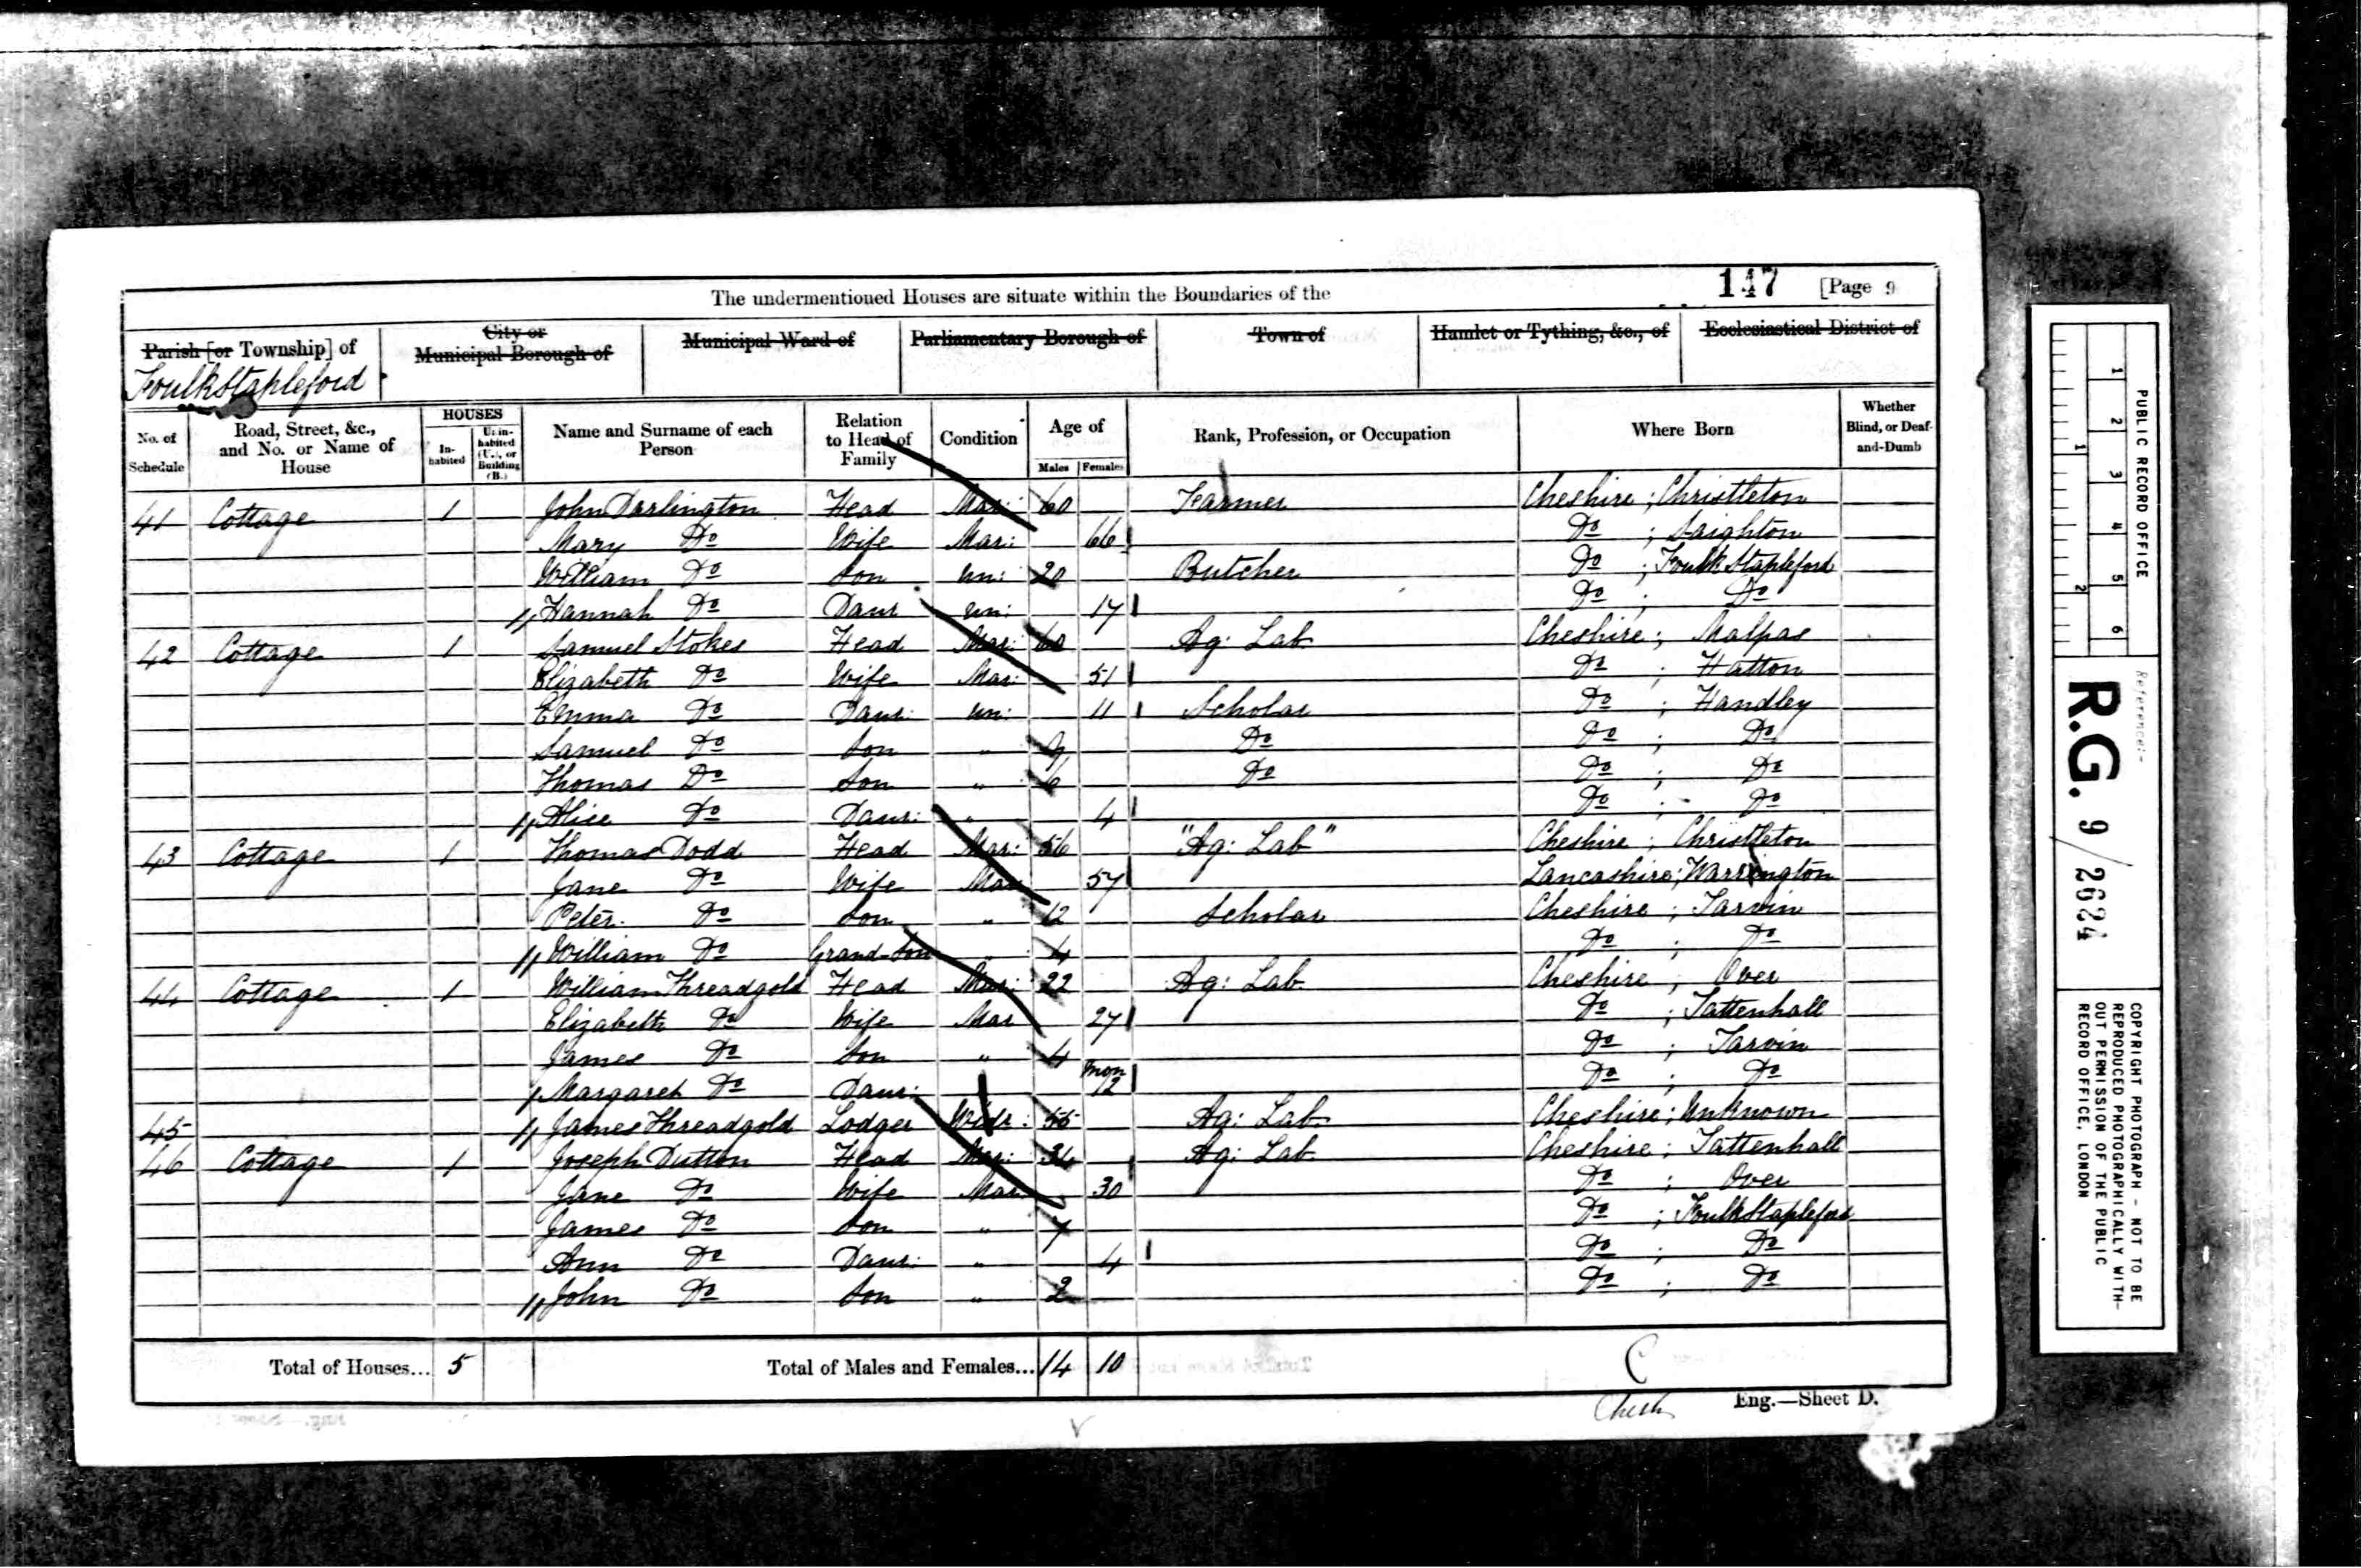 The undermentioned Houses are situate within the Boundaries of the 147 [Page 9
Parish [or Township] of City or Municipal Borough of Municipal Ward of Parliamentary Borough of Town of Hamlet or Tything, &c., of Ecclesiastical District of
FoulkStapleford
No. of Schedule Road, Street, &c., and No. or Name of House HOUSES In-habited Unin-habited (U.), or Building (B.) Name and Surname of each Person Relation to Head of Family Condition Age of Males Females Rank, Profession, or Occupation Where Born Whether Blind, or Deaf-and-Dumb
41 Cottage 1 John Darlington Head Mar: 60 Farmer Cheshire ; Christleton
Mary Do Wife Mar: 66 Do ; Saighton
William Do Son un: 20 Butcher Do ; Foulk Stapleford
Hannah Do Daur un: 17 Do ; Do
42 Cottage 1 Samuel Stokes Head Mar: 60 Ag: Lab Cheshire ; Malpas
Elizabeth Do Wife Mar: 51 Do ; Hatton
Emma Do Daur: un: 11 Scholar Do ; Handley
Samuel Do Son " 9 Do Do ; Do
Thomas Do Son " 6 Do Do ; Do
Alice Do Daur: " 4 Do ; Do
43 Cottage 1 Thomas Dodd Head Mar: 56 "Ag: Lab" Cheshire ; Christleton
Jane Do Wife Mar 57 Lancashire ; Warrington
Peter Do Son " 12 Scholar Cheshire ; Tarvin
William Do Grand-Son " 4 Do ; Do
44 Cottage 1 William Threadgold Head Mar: 22 Ag: Lab Cheshire ; Over
Elizabeth Do Wife Mar 27 Do ; Tattenhall
James Do Son " 4 Do ; Tarvin
Margaret Do Daur: mon 2 Do ; Do
45 James Threadgold Lodger Widr: 55 Ag: Lab Cheshire ; Unknown
46 Cottage 1 Joseph Dutton Head Mar: 34 Ag: Lab Cheshire ; Tattenhall
Jane Do Wife Mar: 30 Do ; Over
James Do Son " 7 Do ; FoulkStapleford
Ann Do Daur: " 4 Do ; Do
John Do Son " 2 Do ; Do
Total of Houses... 5 Total of Males and Females... 14 10 C
Eng.—Sheet D.
PUBLIC RECORD OFFICE
1 2 3 4 5 6
1 2
Reference:-
R.G. 9/2624
COPYRIGHT PHOTOGRAPH – NOT TO BE
REPRODUCED PHOTOGRAPHICALLY WITH-
OUT PERMISSION OF THE PUBLIC
RECORD OFFICE, LONDON